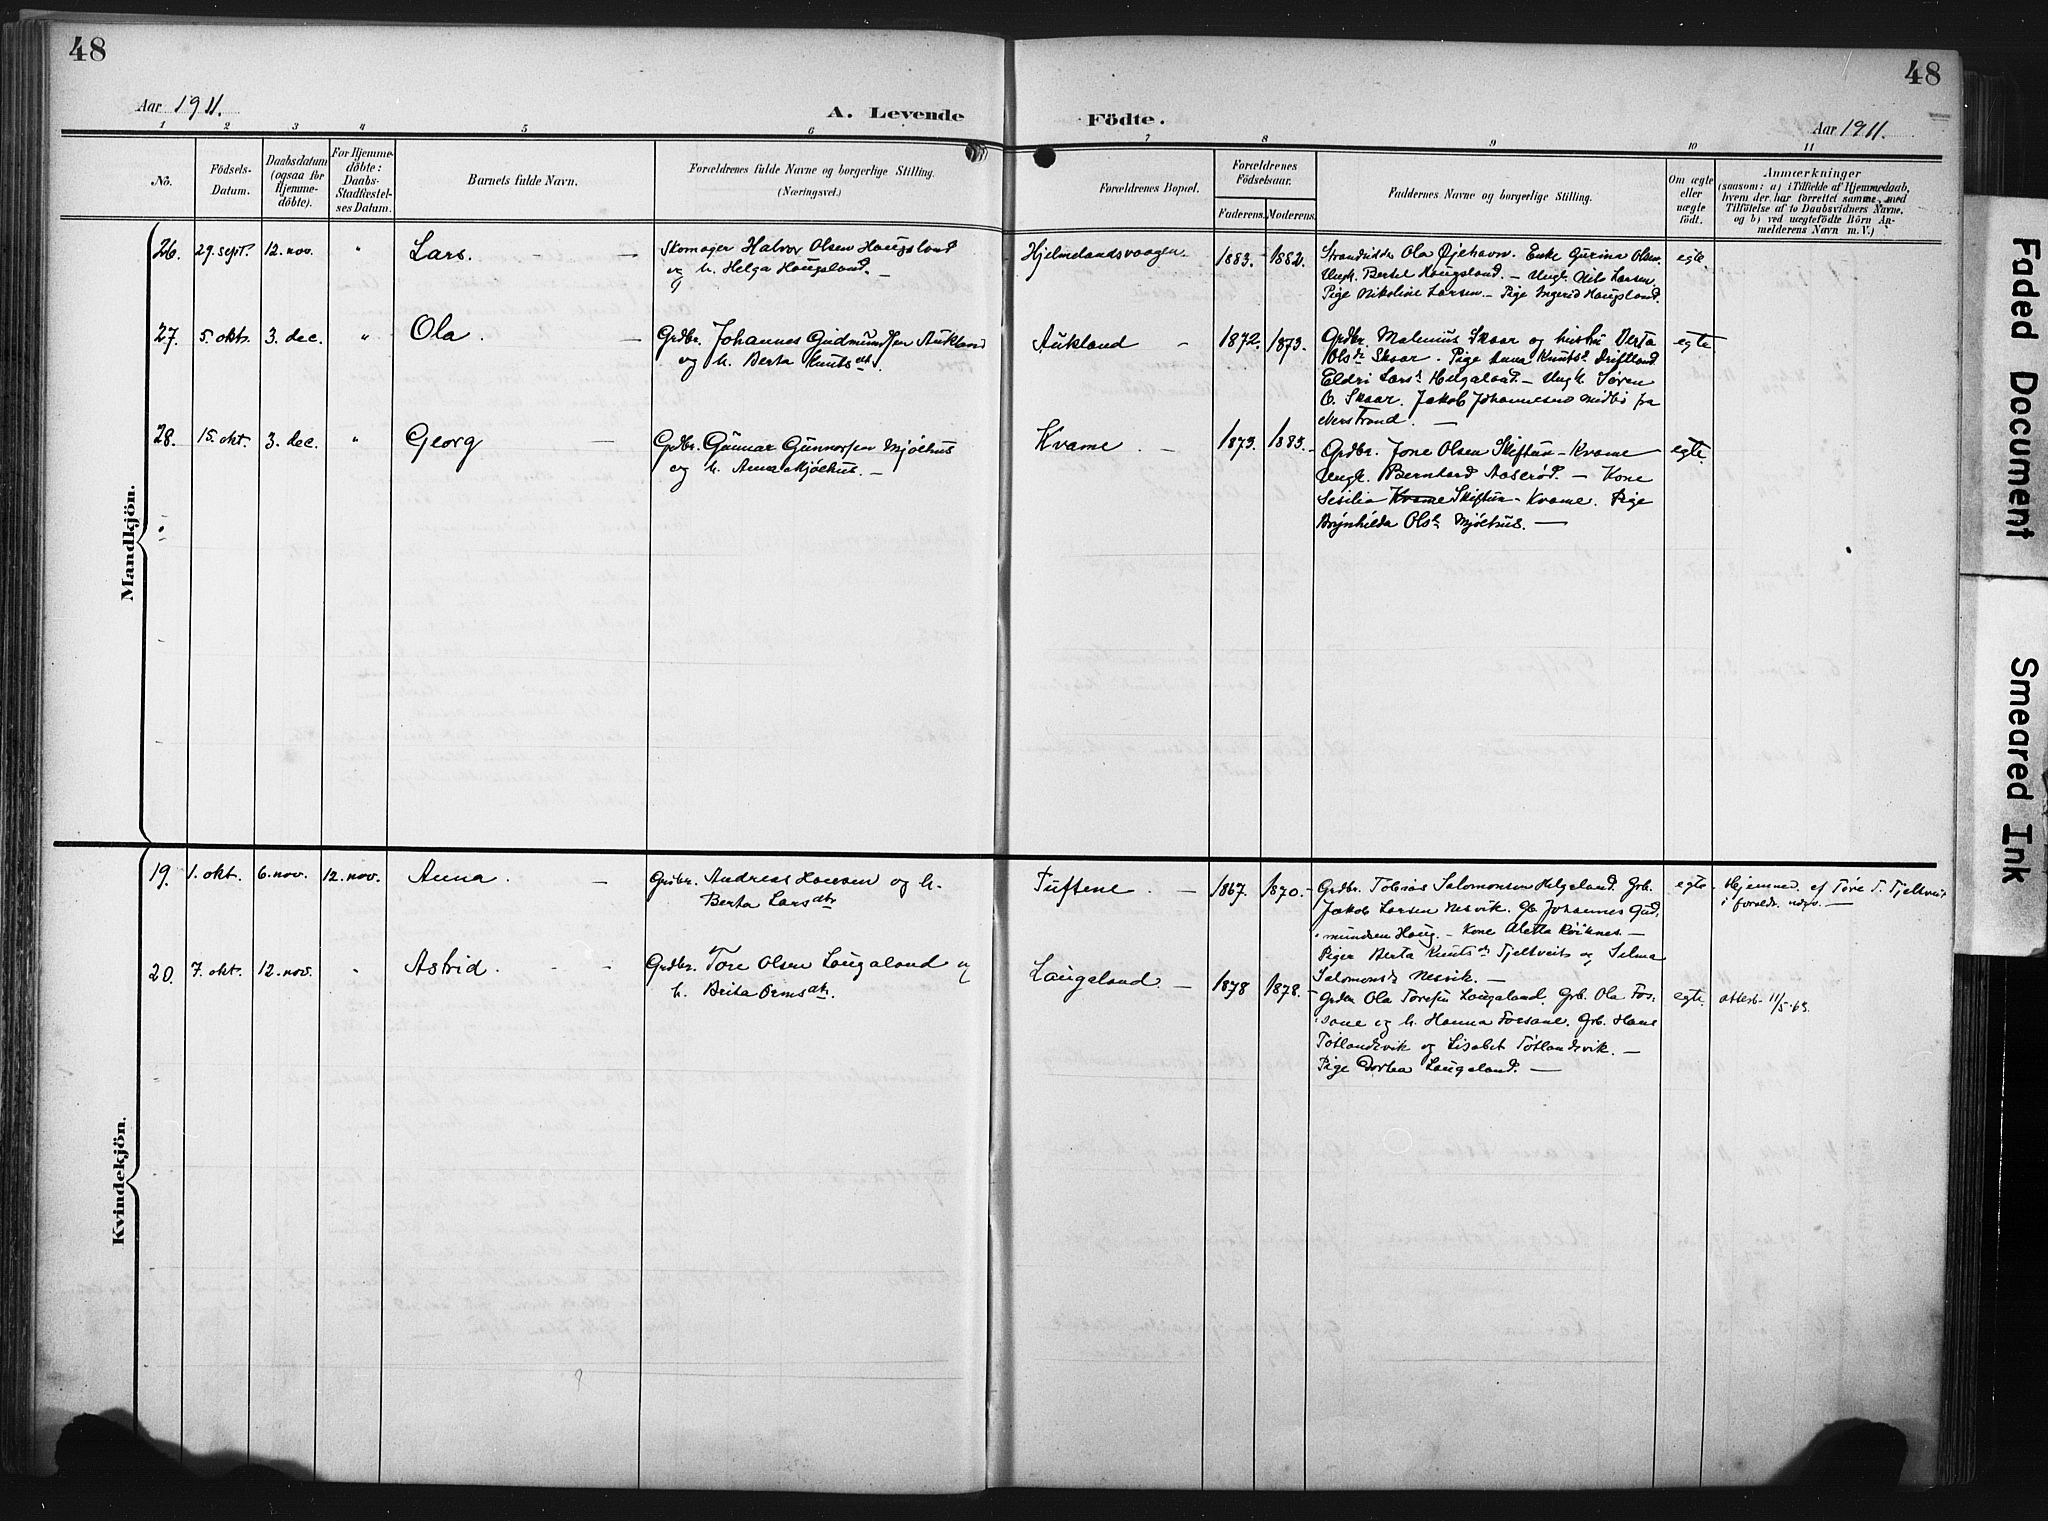 48
48
Aar 1911.
A. Levende Födte.
Aar 1911.
1 2 3 4 5 6 7 8 9 10 11
No.
Födsels-
Datum.
Daabsdatum
(ogsaa for
Hjemme-
döbte).
For Hjemme-
döbte:
Daabs-
Stadfæstel-
ses Datum.
Barnets fulde Navn.
Forældrenes fulde Navne og borgerlige Stilling.
(Næringsvei.)
Forældrenes Bopæl.
Forældrenes
Födselsaar.
Faderens. Moderens.
Faddernes Navne og borgerlige Stilling.
Om ægte
eller
uægte
födt.
Anmærkninger
(saasom: a) i Tilfælde af Hjemmedaab,
hvem der har forrettet samme, med
Tilföielse af to Daabsvidners Navne,
og b) ved uægtefödte Börn An-
melderens Navn m. V.)
Mandkjön.
26. 29. sept. 12. nov. " Lars.
Skomager Halvor Olsen Haugsland
og h. Helga Haugsland. —
Hjelmelandsvaagen. 1883. 1882.
Strandsidder Ola Øjehavn. Enke Gurina Olsen.
Ungk. Bertel Haugsland. — Ungk. Nils Larsen.
Pige Nikoline Larsen. — Pige Ingerid Haugsland.
egte.
27. 5. okt. 3. dec. " Ola. —
Grdbr. Johannes Gudmundsen Aukland
og h. Berta Knutsdtr.
Aukland - 1872. 1873.
Grdbr. Malenius Skaar og hustru Berta
Olsdr Skaar. Pige Anna Knutsd. Driftland
Eldri Larsd. Helgaland. — Ungk. Søren
O. Skaar. Jakob Johannesen Midbø fra
Nerstrand. —
egte.
28. 15. okt. 3. dec. " Georg —
Grdbr. Gunnar Gunnarsen Mjølhus
og h. Anna Mjølhus. —
Kvame. - 1873. 1883.
Grdbr. Jone Olsen Skiftun - Kvame
Ungk. Bernhard Aaserød. — Kone
Sesilia Kvame Skiftun - Kvame. Pige
Brynhilda Olsd. Mjølhus. —
egte.
Kvindekjön.
19. 1. okt. 6. nov. 12. nov. Anna. —
Grdbr. Andreas Hansen og h.
Berta Larsdtr
Tuftene. - 1867. 1870.
Grdbr. Tobias Salomonsen Helgeland. Grb.
Jakob Larsen Nesvik. Gb. Johannes Gud-
mundsen Haug. — Kone Aletta Røiknes. —
Piger Berta Knutsdr Tjeltveit og Selma
Salomonsd. Nesvik. —
egte. Hjemmed. af Tore T. Tjeltveit
i foreldr. nærv. —
20. 7. okt. 12. nov. " Astrid. - -
Grdbr. Tore Olsen Laugaland og
h. Brita Ormsdtr.
Laugaland. - 1878 1878.
Grdbr. Ola Toresen Laugaland. Grb. Ola Fos-
sane og h. Hanna Fossane. Grb. Hans
Tøtlandsvik og Lisabet Tøtlandsvik. —
Pige Dortea Laugaland. —
egte. attest. 11/5-63.
Faded Document
Smeared Ink